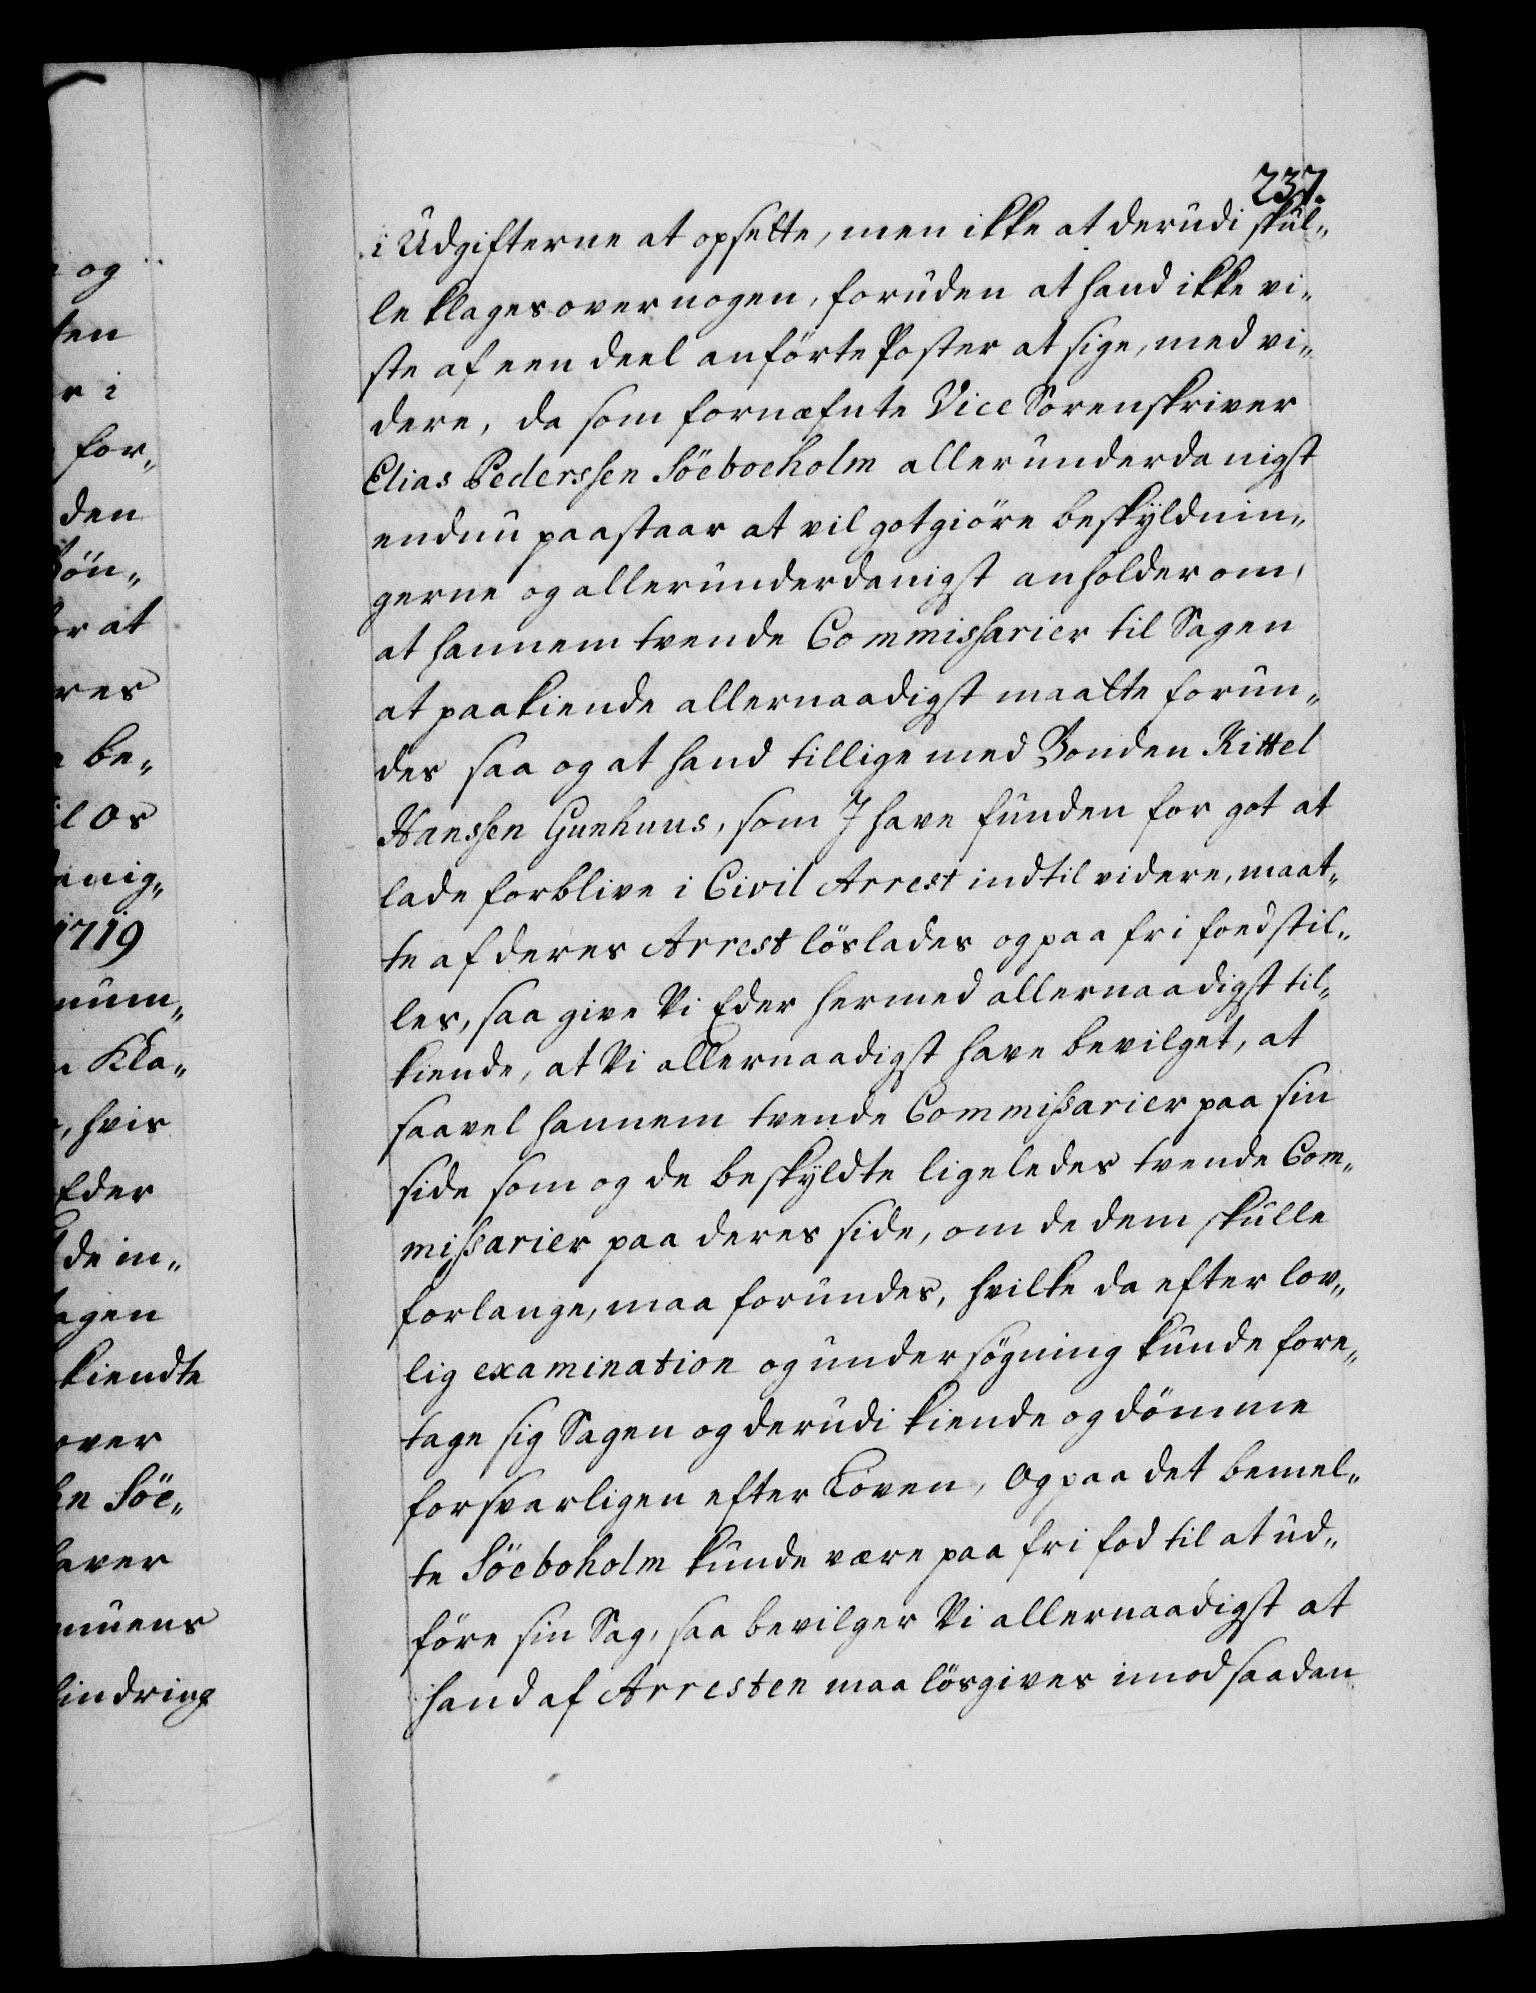 237.
i Udgifterne at opsette, men ikke at derudi skul„
le klages over nogen, foruden at hand ikke vi„
ste af een deel anförte Poster at sige, med vi„
dere, da som fornæfnte Vice Sorenskriver
Elias Pederssen Söeboeholm allerunderdanigst
endnu paastaar at vil gotgiöre beskyldnin„
gerne og allerunderdanigst anholder om,
at hannem tvende Commissarier til Sagen
at paakiende allernaadigst maatte forun„
des saa og at hand tillige med Bonden Kittel
Hanssen Gunhuus, som J have funden for got at
lade forblive i Civil Arrest indtil videre, maat„
te af deres Arrest löslades og paa fri foed stil„
les, saa give Vi Eder hermed allernaadigst til„
kiende, at Vi allernaadigst have bevilget, at
saavel hannem tvende Commissarier paa sin
side som og de beskyldte ligeledes tvende Com„
missarier paa deres side, om de dem skulle
forlange, maa forundes, hvilke da efter lov„
lig examination og undersögning kunde fore„
tage sig Sagen og derudi kiende og dömme
forsvarligen efter Loven, Og paa det bemel„
te Söeboholm kunde være paa fri fod til at ud„
före sin Sag, saa bevilger Vi allernaadigst at
hand af Arresten maa lösgives imod saadan
og
ten
r i
for„
den
Bön„
for at
res
be„
il Os
danig„
1719
num„
Kla„
, hvis
Eder
de in„
agen
kiendte
over
en Söe„
haver
muens
lindring